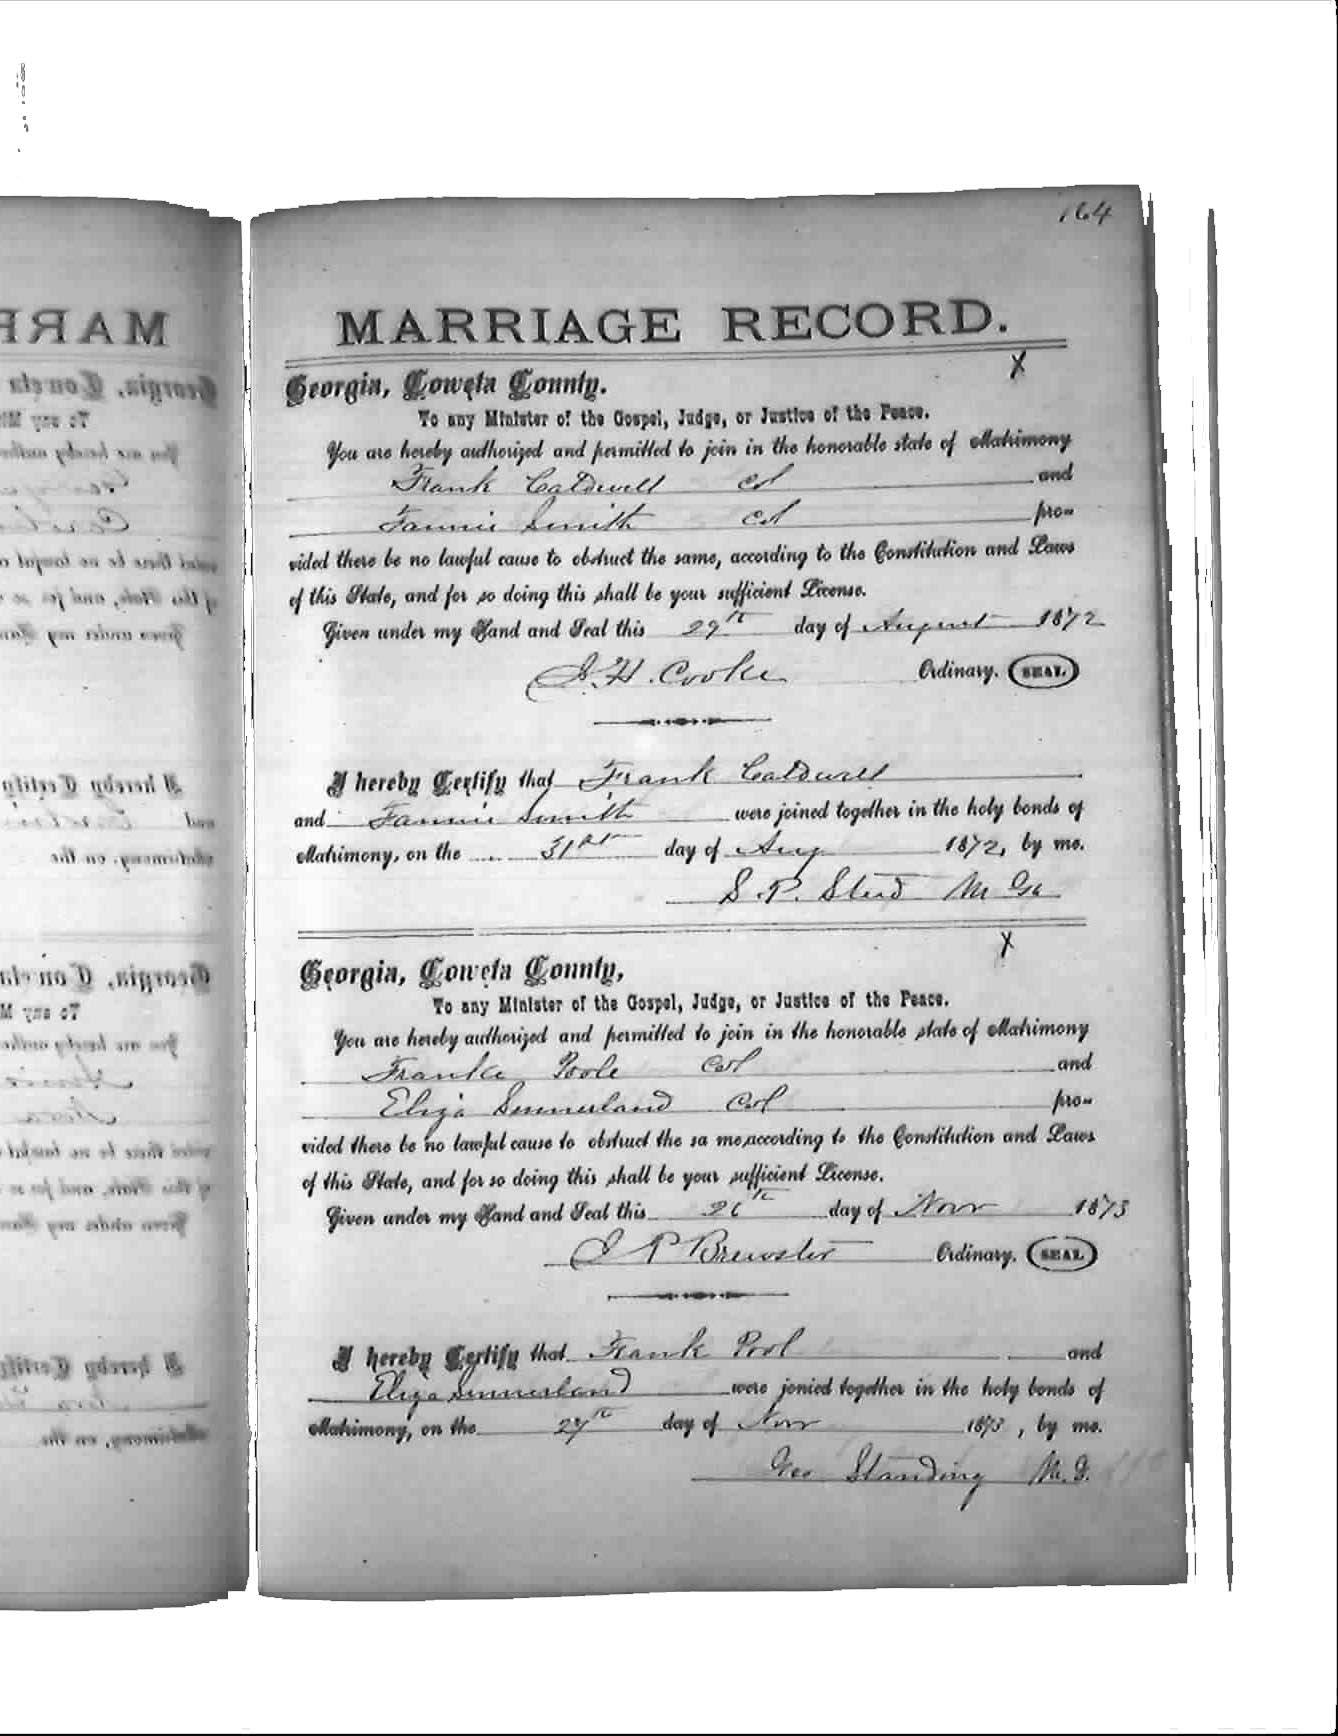 164
MARRIAGE RECORD.
X
Georgia, Coweta County.
To any Minister of the Gospel, Judge, or Justice of the Peace.
You are hereby authorized and permitted to join in the honorable state of Matrimony
Frank Caldwell Col and
Fannie Smith Col pro-
vided there be no lawful cause to obstruct the same, according to the Constitution and Laws
of this State, and for so doing this shall be your sufficient License.
Given under my Hand and Seal this 29th day of August 1872
J. H. Cooke Ordinary. SEAL
I hereby Certify that Frank Caldwell
and Fannie Smith were joined together in the holy bonds of
Matrimony, on the 31st day of Aug 1872, by me.
S. P. Sted M Ga
X
Georgia, Coweta County,
To any Minister of the Gospel, Judge, or Justice of the Peace.
You are hereby authorized and permitted to join in the honorable state of Matrimony
Franke Poole Col and
Eliza Summerland Col pro-
vided there be no lawful cause to obstruct the sa me,according to the Constitution and Laws
of this State, and for so doing this shall be your sufficient License.
Given under my Hand and Seal this 26th day of Novr 1873
J P Brewster Ordinary. SEAL
I hereby Certify that Frank Pool and
Eliza Summerland were jonied together in the holy bonds of
Matrimony, on the 27th day of Novr 1873, by me.
Geo Standing M. G.